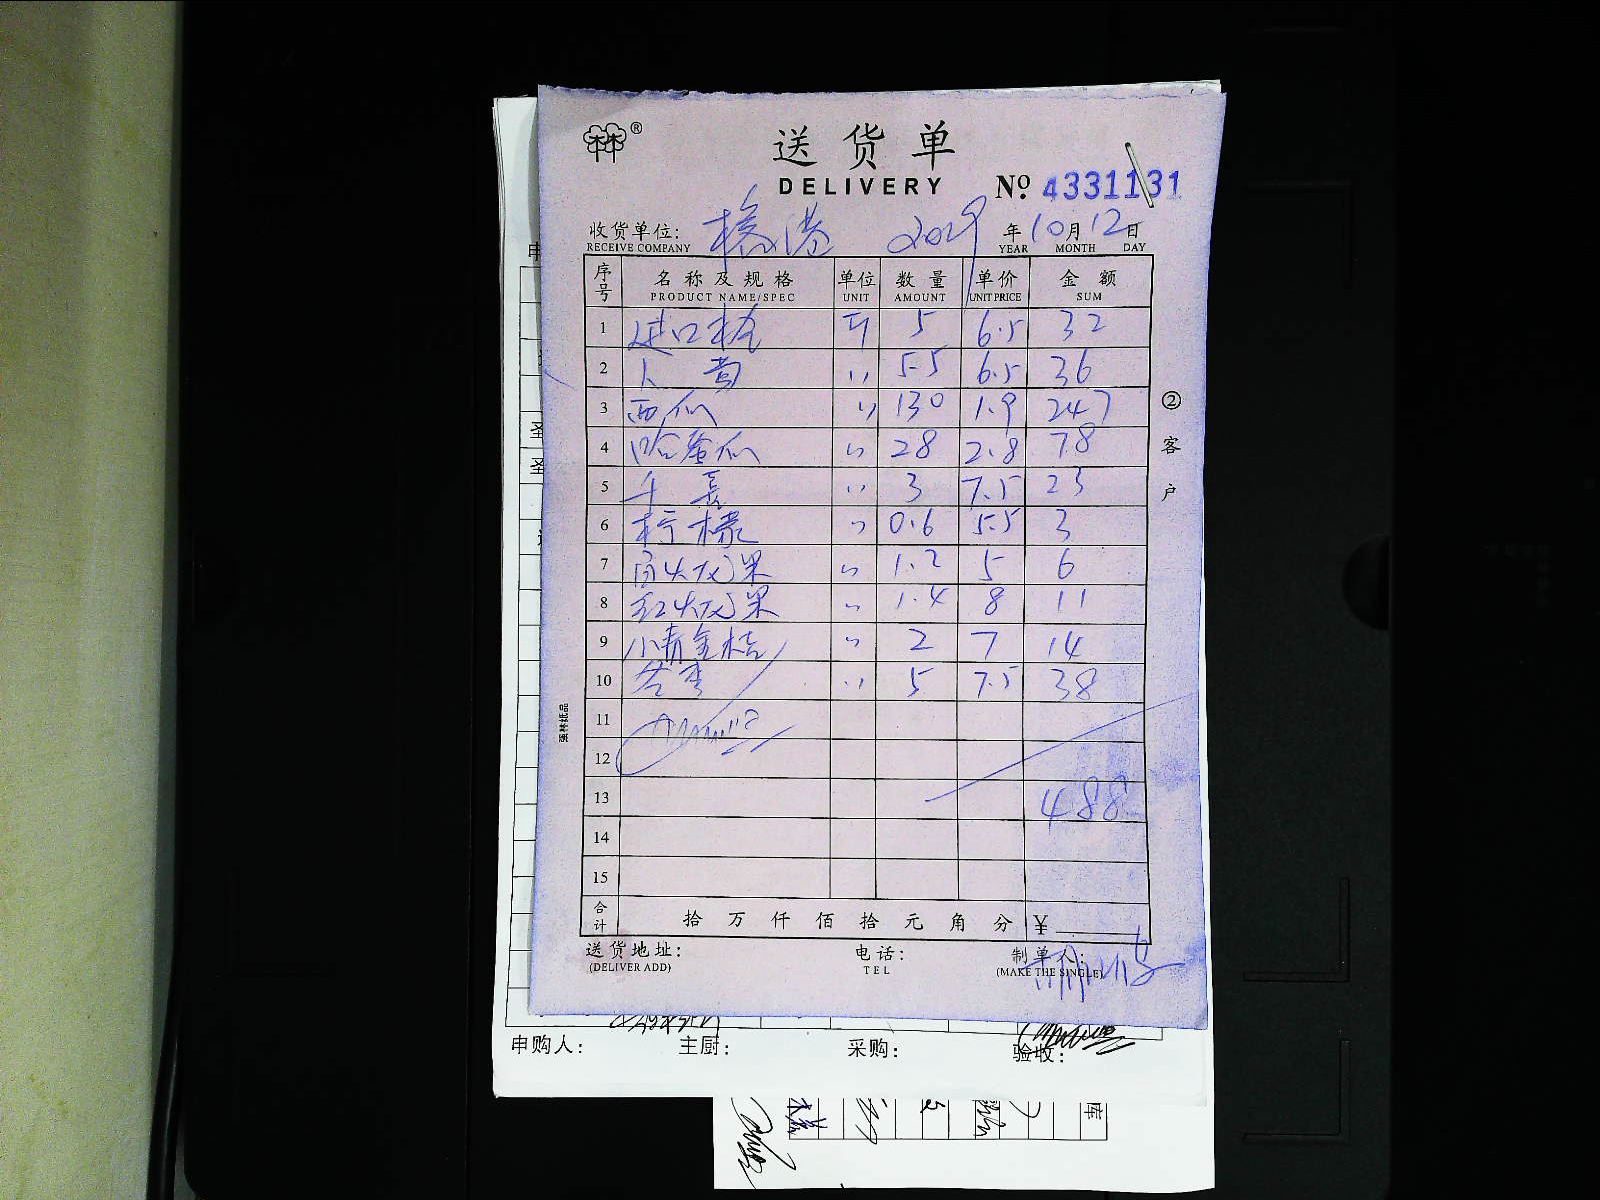 林林®
送货单
DELIVERY
№ 4331131
收货单位: 2019 年 10 月 12 日
RECEIVE COMPANY YEAR MONTH DAY
序号 名称及规格 单位 数量 单价 金额
PRODUCT NAME/SPEC UNIT AMOUNT UNIT PRICE SUM
1 进口 斤 5 6.5 32
2 〃 5.5 6.5 36
3 西瓜 〃 130 1.9 247
4 哈蜜瓜 〃 28 2.8 78
5 〃 3 7.5 23
6 柠檬 〃 0.6 5.5 3
7 白火龙果 〃 1.2 5 6
8 红火龙果 〃 1.4 8 11
9 小青金桔 〃 2 7 14
10 〃 5 7.5 38
11
12
13 488
14
15
合计 拾 万 仟 佰 拾 元 角 分 ¥
②客户
强林纸品
送货地址: 电话: 制单人:
(DELIVER ADD) TEL (MAKE THE SINGLE)
申购人: 主厨: 采购: 验收:
库